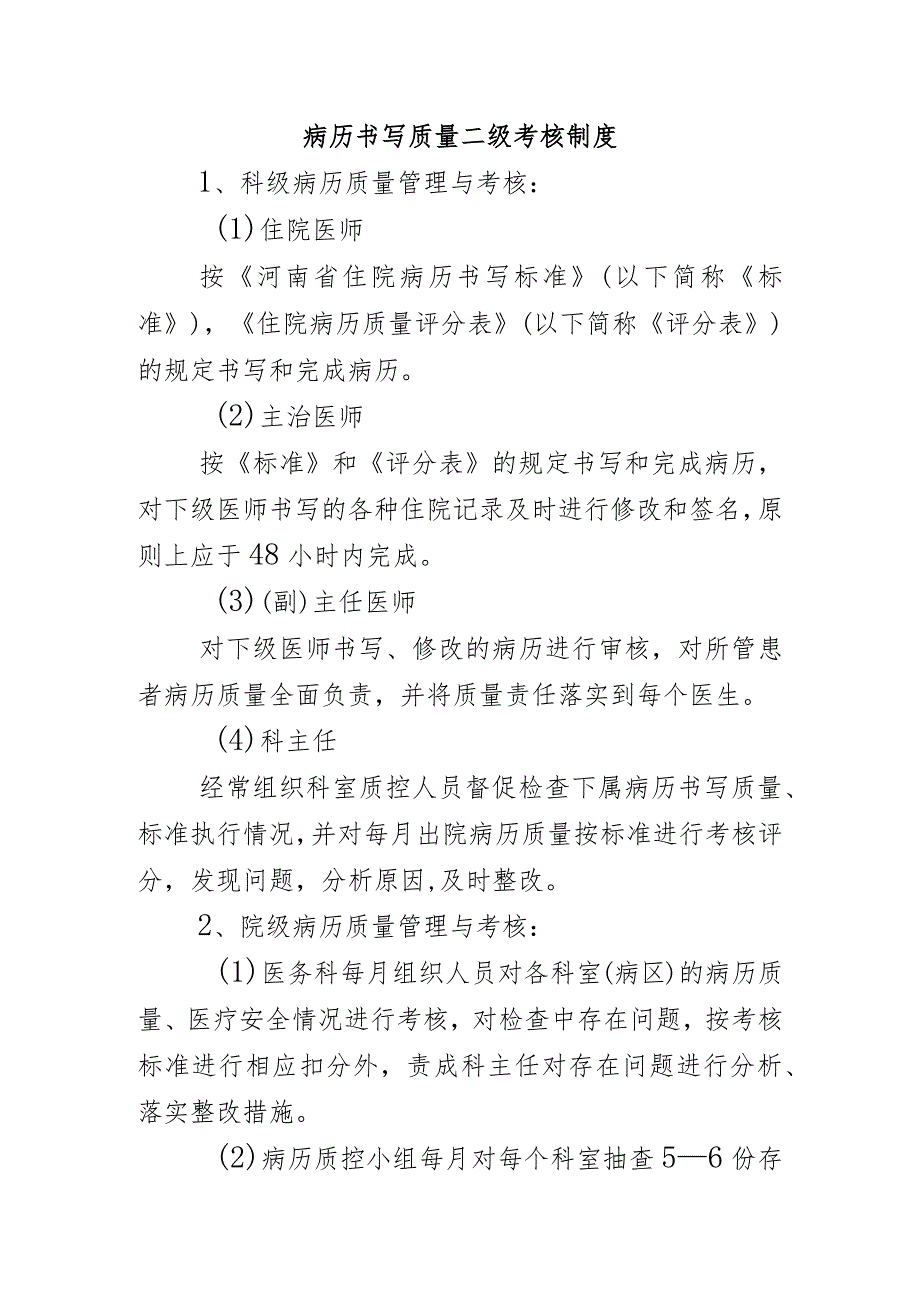 病历书写质量二级考核制度
1、科级病历质量管理与考核：
(1)住院医师
按《河南省住院病历书写标准》(以下简称《标
准》)，《住院病历质量评分表》(以下简称《评分表》)
的规定书写和完成病历。
(2)主治医师
按《标准》和《评分表》的规定书写和完成病历，
对下级医师书写的各种住院记录及时进行修改和签名,原
则上应于48小时内完成。
(3)(副)主任医师
对下级医师书写、修改的病历进行审核，对所管患
者病历质量全面负责，并将质量责任落实到每个医生。
(4)科主任
经常组织科室质控人员督促检查下属病历书写质量、
标准执行情况,并对每月出院病历质量按标准进行考核评
分，发现问题，分析原因,及时整改。
2、院级病历质量管理与考核：
(1)医务科每月组织人员对各科室(病区)的病历质
量、医疗安全情况进行考核，对检查中存在问题，按考核
标准进行相应扣分外，责成科主任对存在问题进行分析、
落实整改措施。
(2)病历质控小组每月对每个科室抽查5—6份存